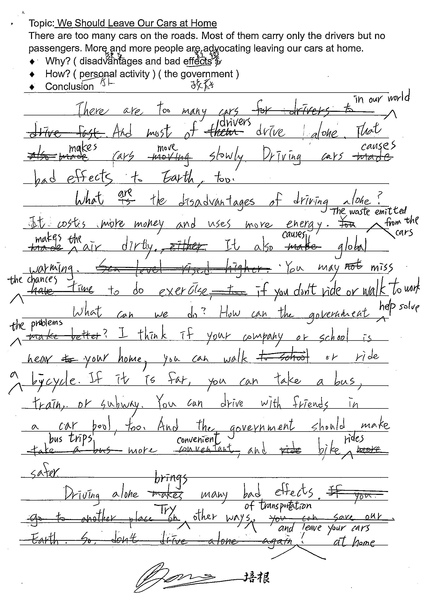 Topic: We Should Leave Our Cars at Home
There are too many cars on the roads. Most of them carry only the drivers but no
passengers. More and more people are advocating leaving our cars at home.
♦ Why? ( disadvantages and bad effects )
♦ How? ( personal activity ) ( the government )
♦ Conclusion
in our world
There are too many cars for drivers to
drivers
drive fast. And most of them drive alone. That
makes move causes
also made cars moving slowly Driving cars made
bad effects to Earth, too.
are
What is the disadvantages of driving alone?
The waste emitted
It costs more money and uses more energy. You from the
makes the causes cars
made air dirty, either It also make global
warming. Sea level rised higher. You may not miss
the chances
have time to do exercise, to if you don't ride or walk to work
What can we do? How can the government help solve
the problems
make better? I think if your company or school is
near to your home, you can walk to school or ride
a bycycle. If it is far, you can take a bus,
train, or subway. You can drive with friends in
a car pool, too. And the government should make
bus trips convenient rides
take a bus more convenient, and ride bike more
safer
brings
Driving alone makes many bad effects. If you
Try of transportation
go to another place on other ways, you can save our
and leave your cars
Earth. So don't drive alone again! at home
培根